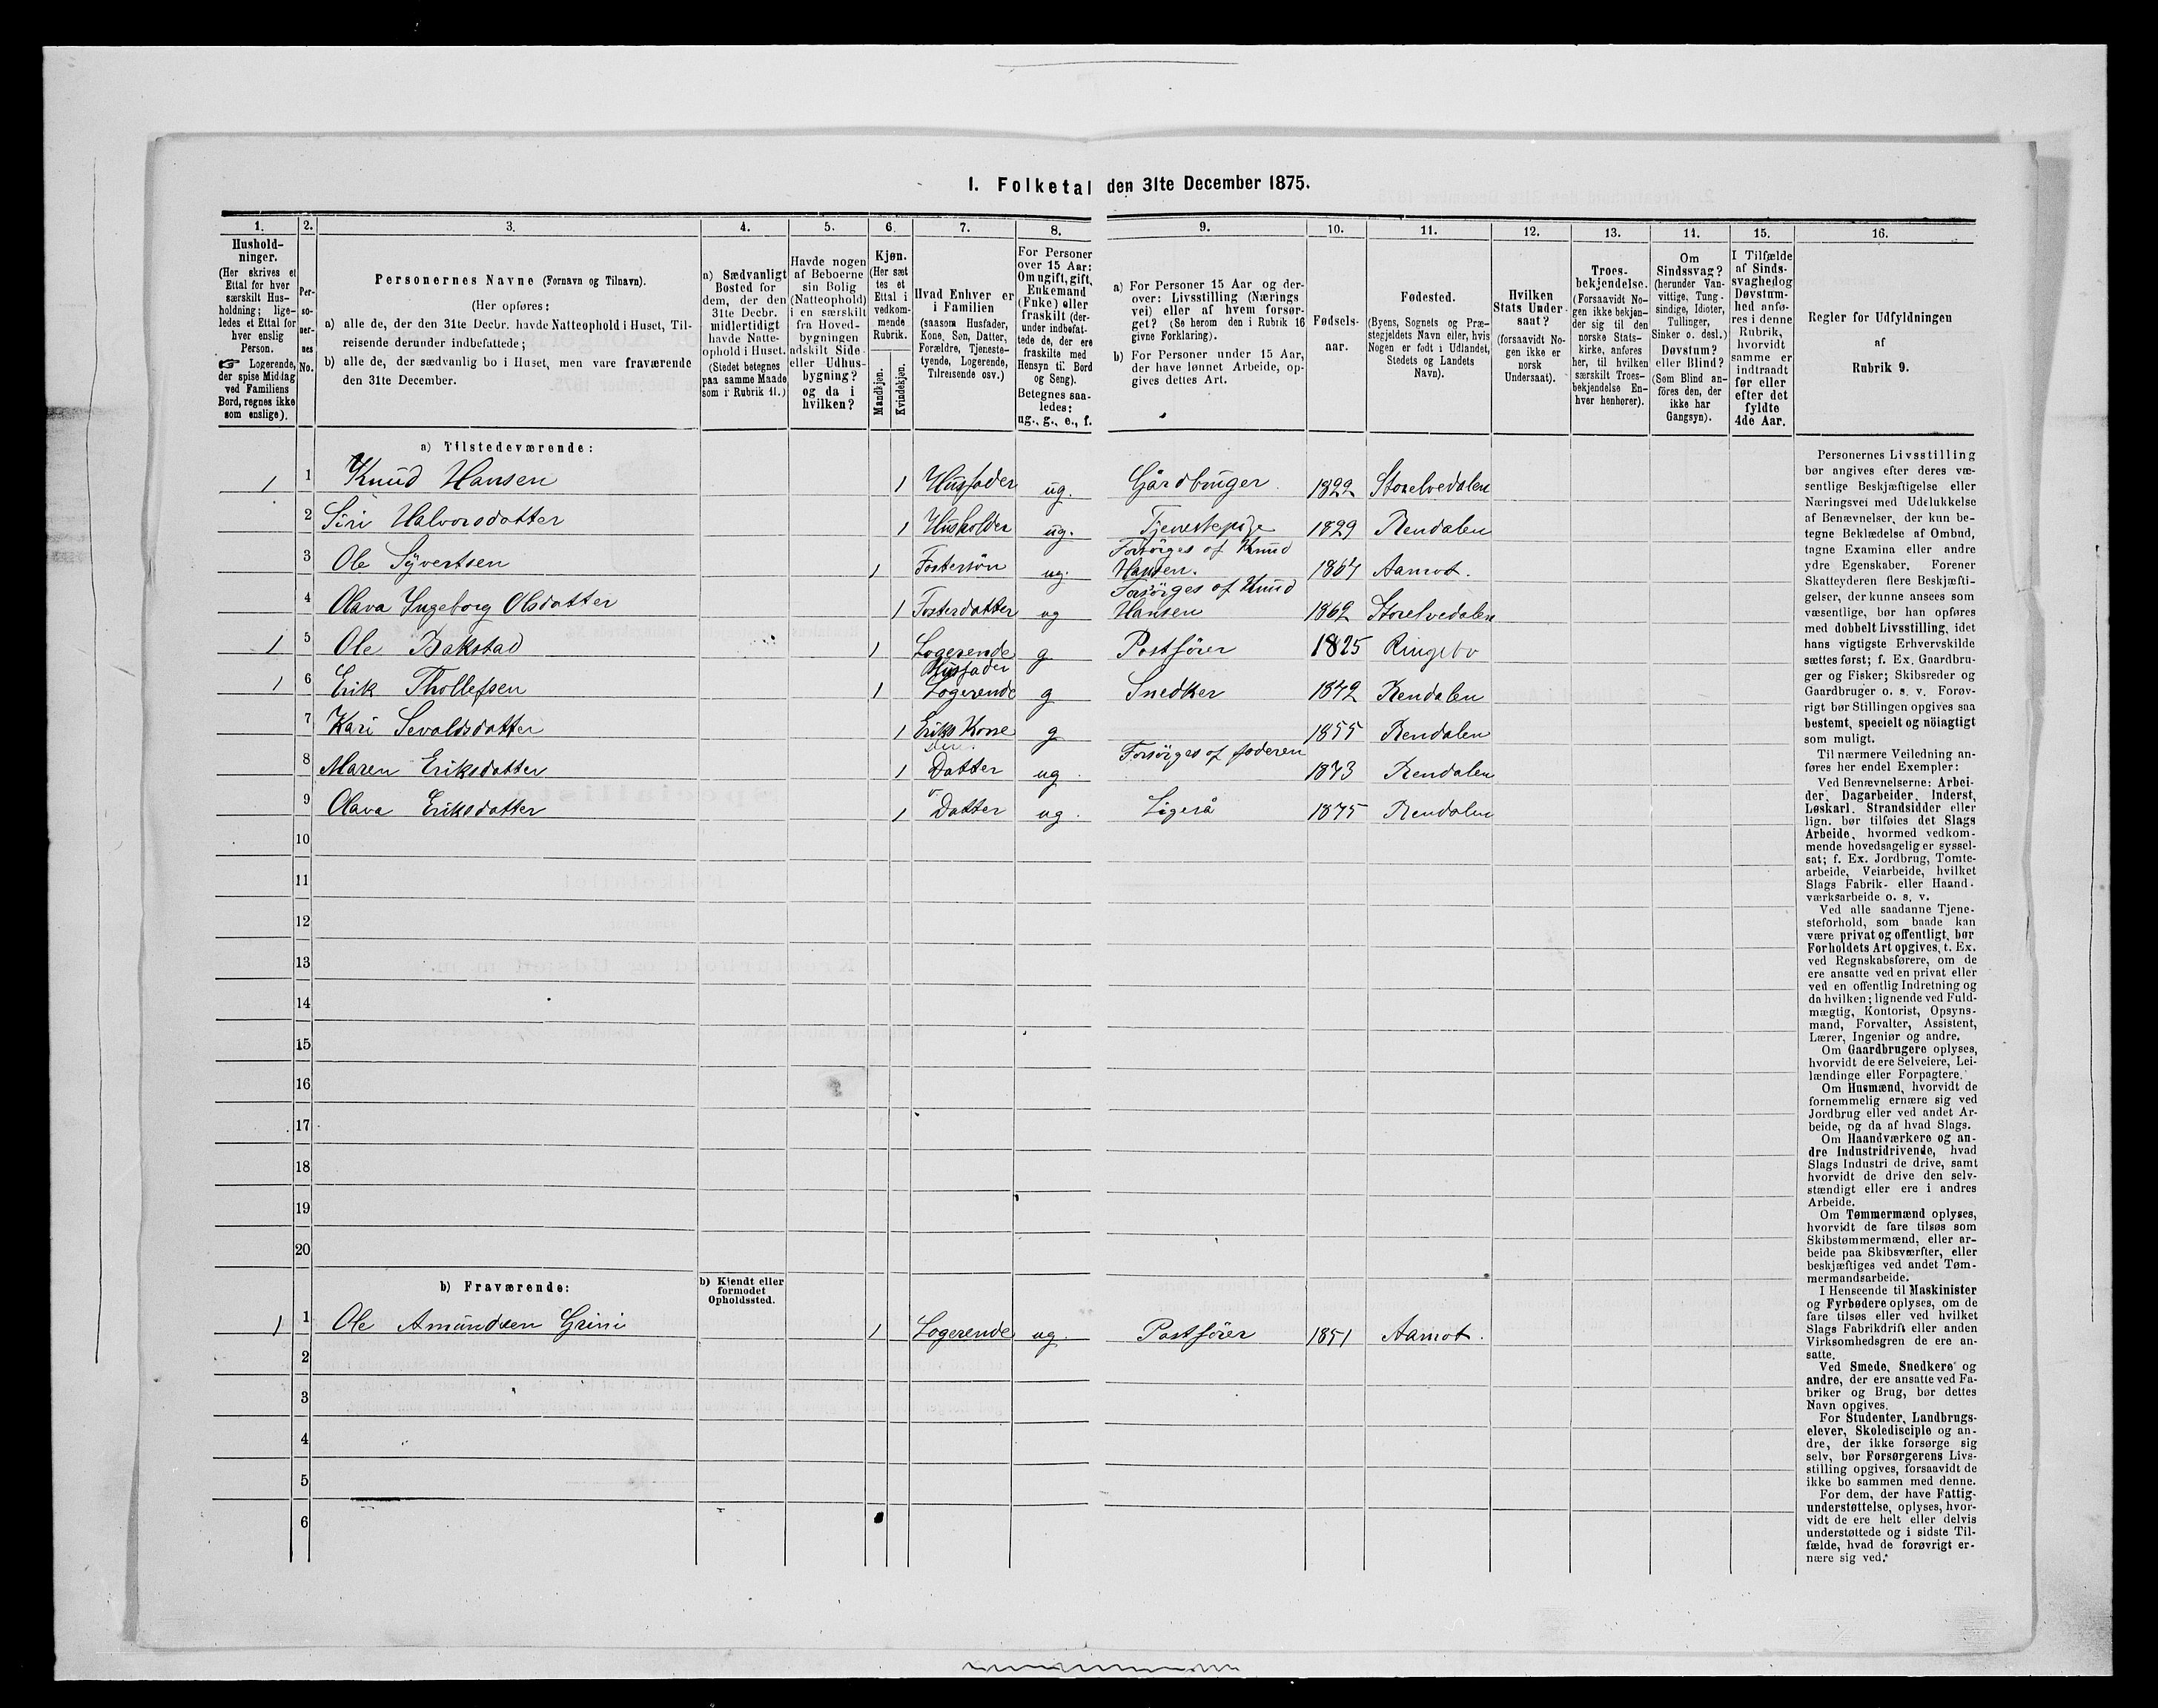 1. Folketal den 31te December 1875.
1. 2. 3. 4. 5. 6. 7. 8. 9. 10. 11. 12. 13. 14. 15. 16.
Hushold-
ninger.
(Her skrives et
Ettal for hver
særskilt Hus-
holdning; lige-
ledes et Ettal for
hver enslig
Person.
☞ Logerende,
der spise Middag
ved Familiens
Bord, regnes ikke
som enslige).
Per-
so-
ner-
nes
No.
Personernes Navne (Fornavn og Tilnavn).
(Her opføres:
a) alle de, der den 31te Decbr. havde Natteophold i Huset, Til-
reisende derunder indbefattede;
b) alle de, der sædvanlig bo i Huset, men vare fraværende
den 31te December.
a) Sædvanligt
Bosted for
dem, der den
31te Decbr.
midlertidigt
havde Natte-
ophold i Huset.
(Stedet betegnes
paa samme Maade
som i Rubrik 11.)
Havde nogen
af Beboerne
sin Bolig
(Natteophold)
i en særskilt
fra Hoved-
bygningen
adskilt Side-
eller Udhus-
bygning?
og da i
hvilken?
Kjøn.
(Her sæt
tes et
Ettal i
vedkom-
mende
Rubrik.
Mandkjøn.
Kvindekjøn.
Hvad Enhver er
i Familien
(saasom Husfader,
Kone, Søn, Datter,
Forældre, Tjeneste-
tyende, Logerende,
Tilreisende osv.)
For Personer
over 15 Aar:
Om ugift, gift,
Enkemand
(Enke) eller
fraskilt (der-
under indbefat-
tede de, der ere
fraskilte med
Hensyn til Bord
og Seng).
Betegnes saa-
ledes:
ug., g., e., f.
a) For Personer 15 Aar og der-
over: Livsstilling (Nærings
vei) eller af hvem forsør-
get? (Se herom den i Rubrik 16
givne Forklaring).
b) For Personer under 15 Aar,
der have lønnet Arbeide, op-
gives dettes Art.
Fødsels-
aar.
Fødested.
(Byens, Sognets og Præ-
stegjeldets Navn eller, hvis
Nogen er født i Udlandet,
Stedets og Landets
Navn).
Hvilken
Stats Under-
saat?
(forsaavidt No-
gen ikke er
norsk
Undersaat).
Troes-
bekjendelse.
(Forsaavidt No-
gen ikke bekjen-
der sig til den
norske Stats-
kirke, anføres
her, til hvilken
særskilt Troes-
bekjendelse En-
hver henhører).
Om
Sindssvag?
(herunder Van-
vittige, Tung-
sindige, Idioter,
Tullinger,
Sinker o. desl.)
Døvstum?
eller Blind?
(Som Blind an-
föres den, der
ikke har
Gangsyn).
I Tilfælde
af Sinds-
svaghed og
Døvstum-
hed anfø-
res i denne
Rubrik,
hvorvidt
samme er
indtraadt
før eller
efter det
fyldte
4de Aar.
Regler for Udfyldningen
af
Rubrik 9.
a) Tilstedeværende:
1 1 Knud Hansen 1 Husfader ug. Gårdbruger 1822 Storelvedalen
2 Siri Halvorsdatter 1 Husholder ug. Tjenestepige 1829 Rendalen
3 Ole Syvertsen 1 Fostersön ug. Forsörges af Knud
Hansen. 1864 Aamot.
4 Olava Ingeborg Olsdatter 1 Fosterdatter ug Forsörges af Knud
Hansen 1862 Storelvedalen
1 5 Ole Bakstad 1 Logerende g Postförer 1825 Ringebo
1 6 Erik Thollefsen 1 Husfader
Logerende g Snedker 1842 Rendalen
7 Kari Sevaldsdatter 1 Eriks Kone g 1855 Rendalen
8 Maren Eriksdatter 1 Datter ug Forsörges af faderen 1873 Rendalen
9 Olava Eriksdatter 1 Datter ug. Ligeså 1875 Rendalen
10
11
12
13
14
15
16
17
18
19
20
b) Fraværende:
b) Kjendt eller
formodet
Opholdssted.
1 1 Ole Amundsen Grini 1 Logerende ug. Postförer 1851 Aamot.
2
3
4
5
6
Personernes Livsstilling
bør angives efter deres væ-
sentlige Beskjæftigelse eller
Næringsvei med Udelukkelse
af Benævnelser, der kun be-
tegne Beklædelse af Ombud,
tagne Examina eller andre
ydre Egenskaber. Forener
Skatteyderen flere Beskjæfti-
gelser, der kunne ansees som
væsentlige, bør han opføres
med dobbelt Livsstilling, idet
hans vigtigste Erhvervskilde
sættes først; f. Ex. Gaardbru-
ger og Fisker; Skibsreder og
Gaardbruger o. s. v. Forøv-
rigt bør Stillingen opgives saa
bestemt, specielt og nöiagtigt
som muligt.
Til nærmere Veiledning an-
føres her endel Exempler:
Ved Benævnelserne: Arbei-
der, Dagarbeider, Inderst,
Løskarl, Strandsidder eller
lign. bør tilføies det Slags
Arbeide, hvormed vedkom-
mende hovedsagelig er syssel-
sat; f. Ex. Jordbrug, Tomte-
arbeide, Veiarbeide, hvilket
Slags Fabrik- eller Haand-
værksarbeide o. s. v.
Ved alle saadanne Tjene-
steforhold, som baade kan
være privat og offentligt, bør
Forholdets Art opgives, t. Ex.
ved Regnskabsførere, om de
ere ansatte ved en privat eller
ved en offentlig Indretning og
da hvilken; lignende ved Fuld-
mægtig, Kontorist, Opsyns-
mand, Forvalter, Assistent,
Lærer, Ingeniør og andre.
Om Gaardbrugere oplyses,
hvorvidt de ere Selveiere, Lei-
lændinge eller Forpagtere.
Om Husmænd, hvorvidt de
fornemmelig ernære sig ved
Jordbrug eller ved andet Ar-
beide, og da af hvad Slags.
Om Haandværkere og an-
dre Industridrivende, hvad
Slags Industri de drive, samt
hvorvidt de drive den selv-
stændigt eller ere i andres
Arbeide.
Om Tømmermænd oplyses,
hvorvidt de fare tilsøs som
Skibstømmermænd, eller ar-
beide paa Skibsværfter, eller
beskjæftiges ved andet Tøm-
mermandsarbeide.
I Henseende til Maskinister
og Fyrbødere oplyses, om de
fare tilsøs eller ved hvilket
Slags Fabrikdrift eller anden
Virksomhedsgren de ere an-
satte.
Ved Smede, Snedkere og
andre, der ere ansatte ved Fa-
briker og Brug, bør dettes
Navn opgives.
For Studenter, Landbrugs-
elever, Skoledisciple og an-
dre, der ikke forsørge sig
selv, bør Forsørgerens Livs-
stilling opgives, forsaavidt de
ikke bo sammen med denne.
For dem, der have Fattig-
understøttelse, oplyses, hvor-
vidt de ere helt eller delvis
understøttede og i sidste Til-
fælde, hvad de forøvrigt er-
nære sig ved.